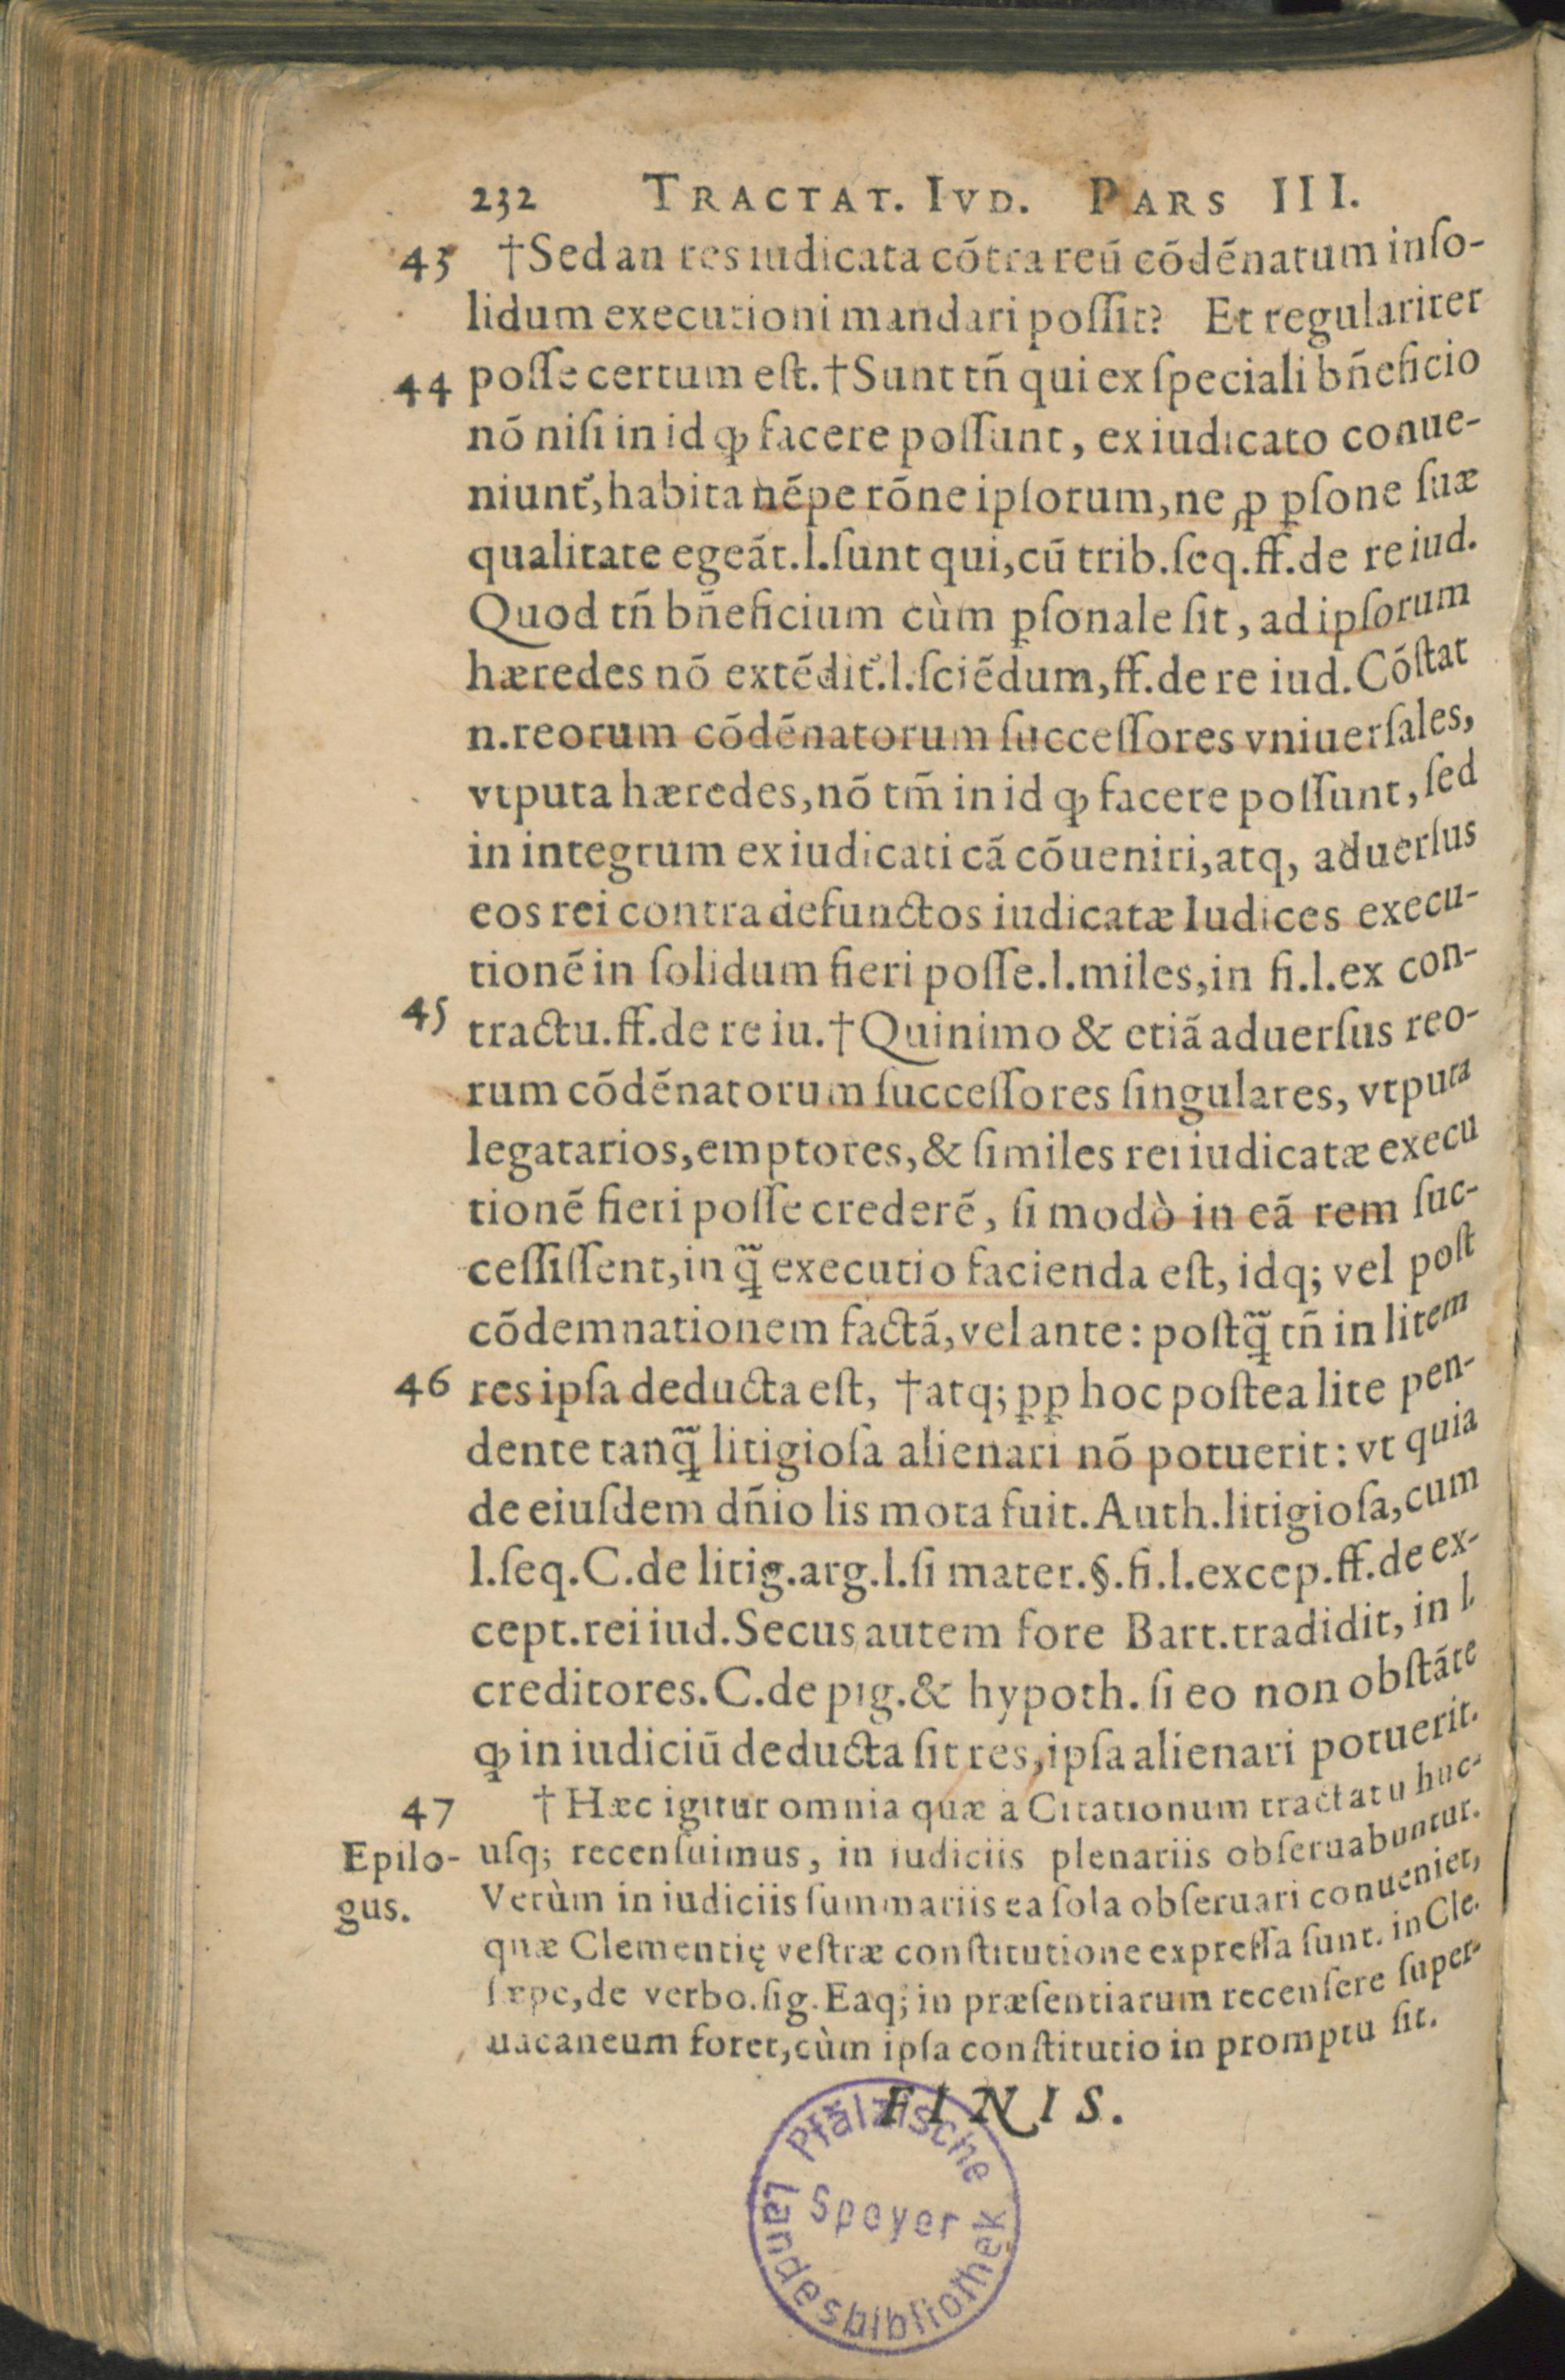 232 TRACTAT. IVD. PARS III.
43 †Sed an res iudicata cõtra reũ cõdẽnatum inſo-
lidum executioni mandari poſſit? Et regulariter
44 poſſe certum eſt.†Sunt tñ qui ex ſpeciali bñeficio
nõ niſi in id ꝙ facere poſſunt, ex iudicato conue-
niunt᷑, habita nẽpe rõne ipſorum, ne ꝓ ꝑſone ſuæ
qualitate egeãt.l.ſunt qui, cũ trib.ſeq.ff.de re iud.
Quod tñ bñeficium cùm ꝑſonale ſit, ad ipſorum
hæredes nõ extẽdit᷑.l.ſciẽdum, ff.de re iud. Cõſtat
n.reorum cõdẽnatorum ſucceſſores vniuerſales,
vtputa hæredes, nõ tm̃ in id ꝙ facere poſſunt, ſed
in integrum ex iudicati cã cõueniri, atq, aduerſus
eos rei contra defunctos iudicatæ Iudices execu-
tionẽ in ſolidum fieri poſſe.l.miles, in fi.l.ex con-
45 tractu.ff.de re iu.†Quinimo & etiã aduerſus reo-
rum cõdẽnatorum ſucceſſores ſingulares, vtputa
legatarios, emptores, & ſimiles rei iudicatæ execu
tionẽ fieri poſſe crederẽ, ſi modò in eã rem ſuc-
ceſſiſſent, in ꝗ̃ executio facienda eſt, idq; vel poſt
cõdemnationem factã, vel ante: poſtꝗ̃ tñ in litem
46 res ipſa deducta eſt, †atq; ꝑꝑ hoc poſtea lite pen-
dente tanꝗ̃ litigioſa alienari nõ potuerit: vt quia
de eiuſdem dñio lis mota fuit. Auth.litigioſa, cum
l.ſeq.C.de litig.arg.l.ſi mater.§.fi.l.excep.ff.de ex-
cept.rei iud. Secus autem fore Bart.tradidit, in l.
creditores.C.de pig.& hypoth. ſi eo non obſtãte
ꝙ in iudiciũ deducta ſit res, ipſa alienari potuerit.
47 † Hæc igitur omnia quæ à Citationum tractatu huc-
Epilo- uſq; recenſuimus, in iudiciis plenariis obſeruabuntur.
gus. Verùm in iudiciis ſummariis ea ſola obſeruari conueniet,
quæ Clementię veſtræ conſtitutione expreſſa ſunt. in Cle.
ſæpe, de verbo.ſig. Eaq; in præſentiarum recenſere ſuper-
uacaneum foret, cùm ipſa conſtitutio in promptu ſit.
FINIS.
Pfälzische
Landesbibliothek
Speyer